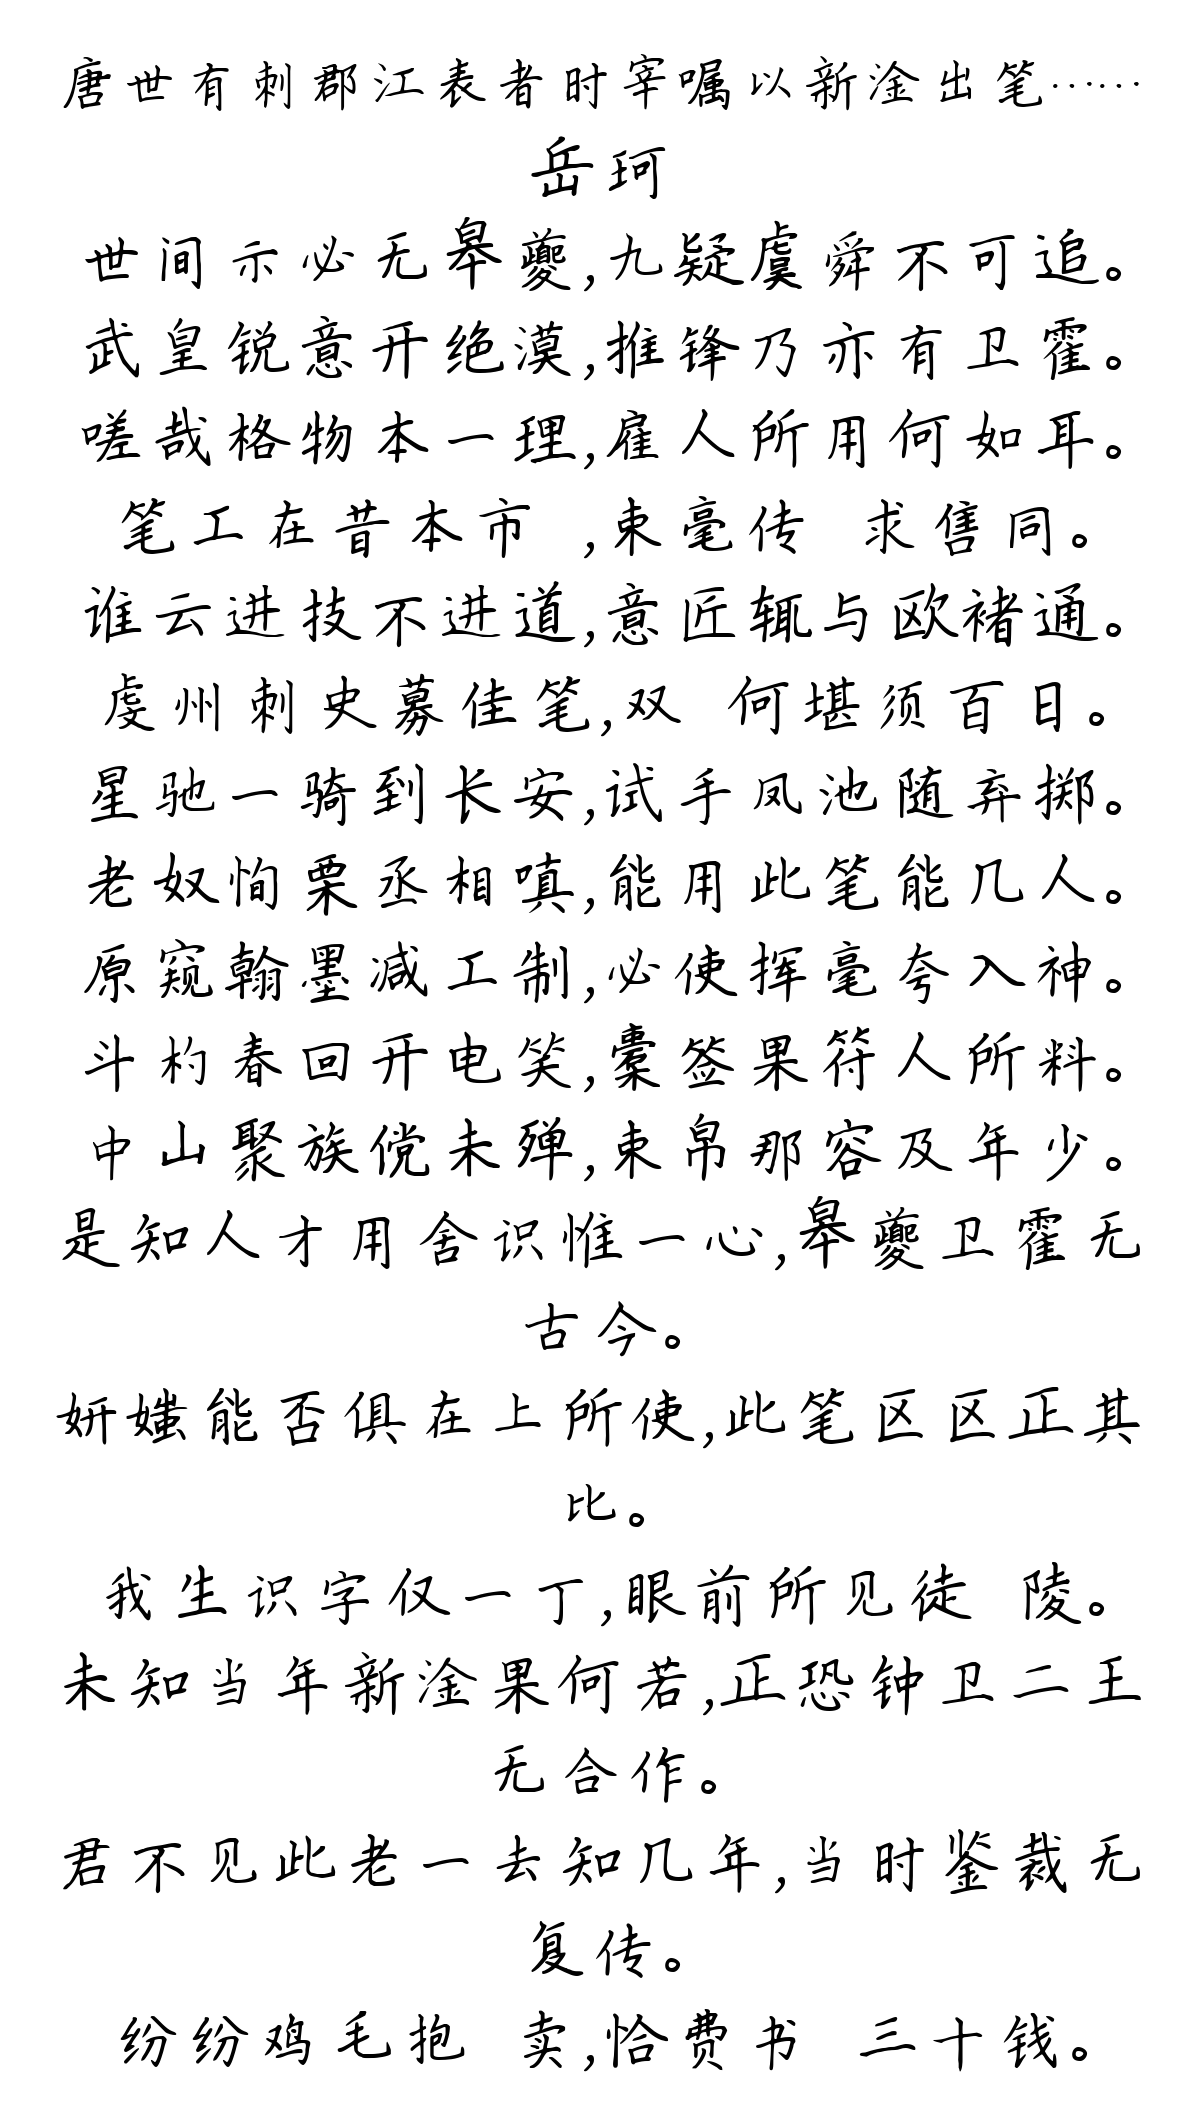 唐世有刺郡江表者时宰嘱以新淦出笔……
岳珂
世间示必无皋夔,九疑虞舜不可追。
武皇锐意开绝漠,推锋乃亦有卫霍。
嗟哉格物本一理,雇人所用何如耳。
笔工在昔本市 ,束毫传 求售同。
谁云进技不进道,意匠辄与欧褚通。
虔州刺史募佳笔,双 何堪须百日。
星驰一骑到长安,试手凤池随弃掷。
老奴恂栗丞相嗔,能用此笔能几人。
原窥翰墨减工制,必使挥毫夸入神。
斗杓春回开电笑,橐签果符人所料。
中山聚族傥未殚,束帛那容及年少。
是知人才用舍识惟一心,皋夔卫霍无
古今。
妍媸能否俱在上所使,此笔区区正其
比。
我生识字仅一丁,眼前所见徒 陵。
未知当年新淦果何若,正恐钟卫二王
无合作。
君不见此老一去知几年,当时鉴裁无
复传。
纷纷鸡毛抱 卖,恰费书 三十钱。